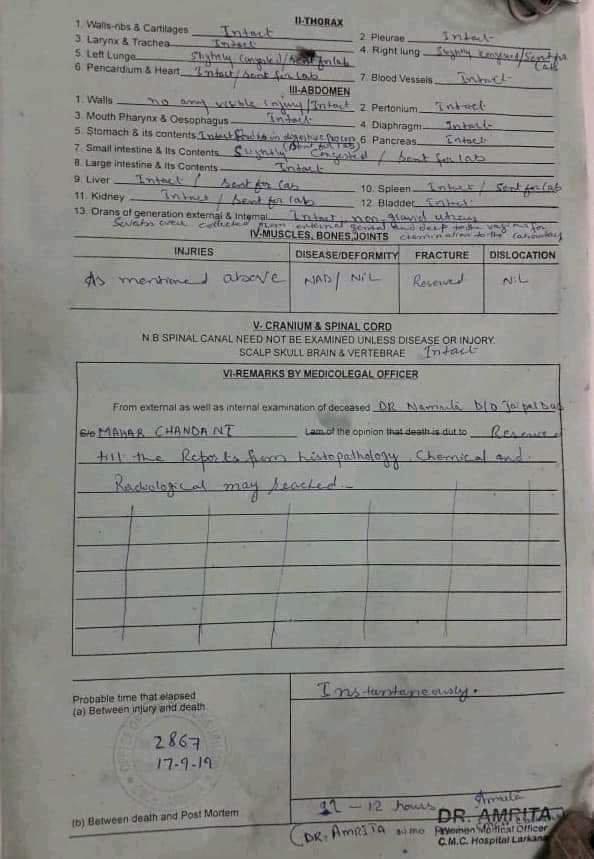 II-THORAX
1. Walls-ribs & Cartilages Intact 2. Pleurae Intact
3. Larynx & Trachea Intact 4. Right lung Slightly Congested/Sent for Lab
5. Left Lunge Slightly Congested/Sent for lab
6. Pencardium & Heart Intact/Sent for Lab 7. Blood Vessels Intact
III-ABDOMEN
1. Walls no any visible injury/Intact 2. Pertonium Intact
3. Mouth Pharynx & Oesophagus Intact 4. Diaphragm Intact
5. Stomach & its contents Intact in digestive process (Sent for lab) 6. Pancreas Intact
7. Small intestine & Its Contents Slightly Congested / Sent for lab
8. Large intestine & Its Contents Intact
9. Liver Intact / Sent for Lab 10. Spleen Intact / Sent for lab
11. Kidney Intact / Sent for lab 12. Bladder Intact
13. Orans of generation external & Internal Intact, non gravid uterus
collected from external genital and deep to the for
IV-MUSCLES, BONES,JOINTS to the laboratory
INJRIES DISEASE/DEFORMITY FRACTURE DISLOCATION
As mentioned above NAD/ NiL Reserved NiL
V- CRANIUM & SPINAL CORD
N.B SPINAL CANAL NEED NOT BE EXAMINED UNLESS DISEASE OR INJORY.
SCALP SKULL BRAIN & VERTEBRAE Intact
VI-REMARKS BY MEDICOLEGAL OFFICER
From external as well as internal examination of deceased DR Namrita D/O Jaipal Das
S/o MAHAR CHANDANI I.am of the opinion that death is dut to Reserved
till the Reports from histopathology, Chemical and
Radiological may reached.-
Probable time that elapsed
(a) Between injury and death Instantaneously.
2867
17-9-19
(b) Between death and Post Mortem - 12 hours
Amrita
DR. AMRITA
(DR. AMRITA WMO Women Medical Officer
C.M.C. Hospital Larkana